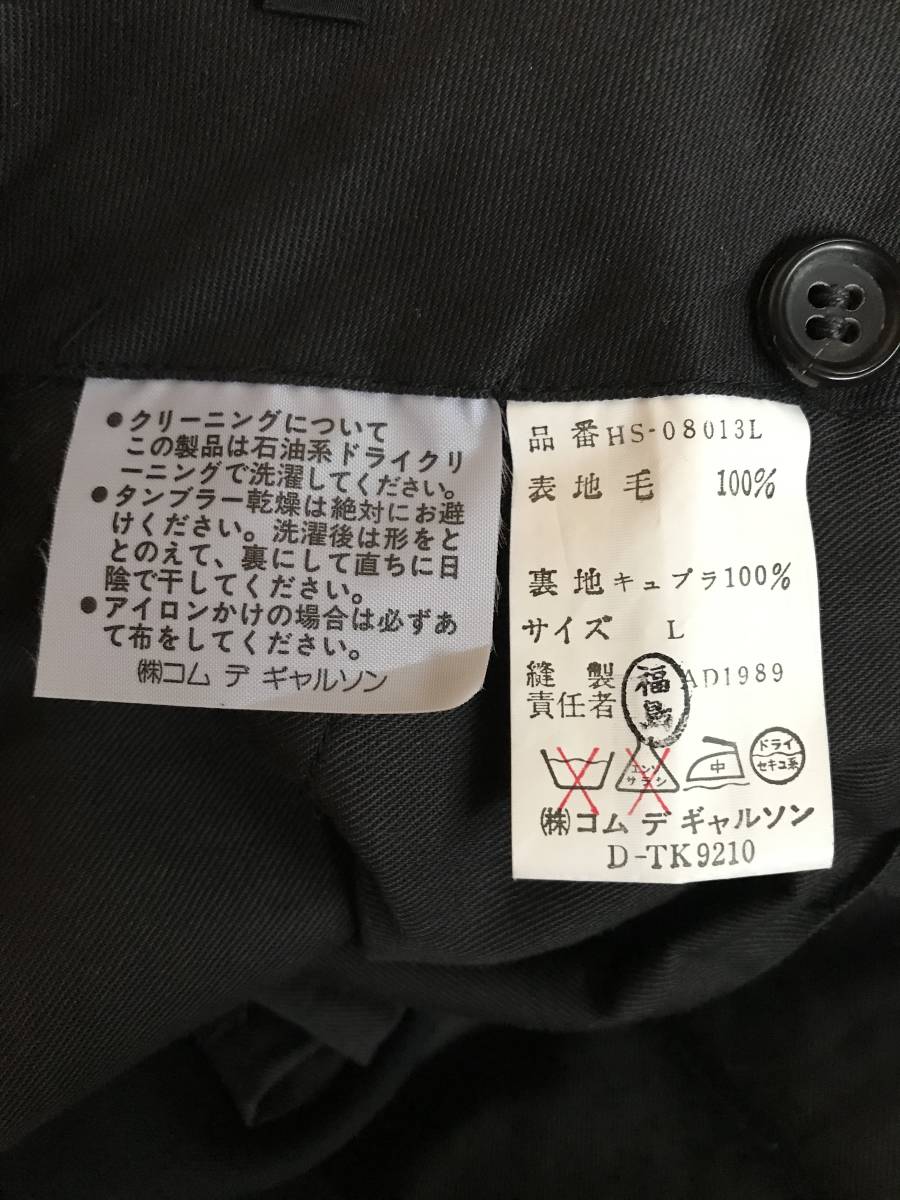 ●クリーニングについて
この製品は石油系ドライクリ
ーニングで洗濯してください。
●タンブラー乾燥は絶対にお避
けください。洗濯後は形をと
とのえて、裏にして直ちに日
陰で干してください。
●アイロンかけの場合は必ずあ
て布をしてください。
㈱コム デ ギャルソン
品 番 HS-08013L
表 地 毛 100%
裏 地 キュプラ 100%
サイズ L
縫 製
責任者 福島 AD1989
エンソ
サラシ
中
ドライ
セキユ系
㈱コム デ ギャルソン
D-TK9210